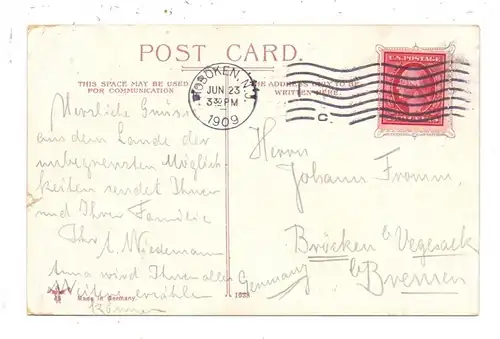 POST CARD.
THIS SPACE MAY BE USED
FOR COMMUNICATION
THE ADDRESS ONLY TO BE
WRITTEN HERE.
HOBOKEN, N.J.
JUN 23
3 30 PM
1909
C.
U.S. POSTAGE
Herzliche Grüsse
aus dem Lande der
unbegrenzten Möglich-
keiten sendet Ihnen
und Ihrer Familie
Ihr A. Wiedemann
Anna wird Ihnen alles
Weitere erzählen
können
Herrn
Johann Fromm,
Brücken b/ Vegesack
b/ Bremen
Germany
Made in Germany.